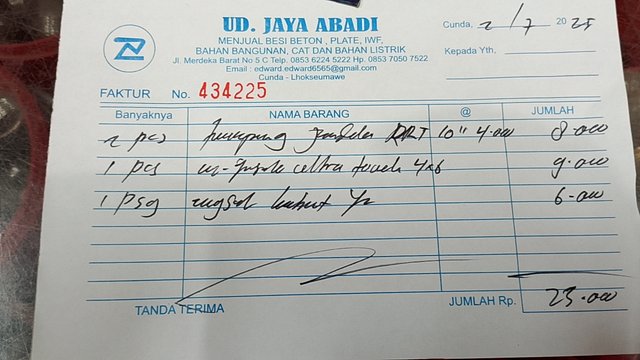 UD. JAYA ABADI
MENJUAL BESI BETON , PLATE, IWF,
BAHAN BANGUNAN, CAT DAN BAHAN LISTRIK
Jl. Merdeka Barat No 5 C Telp. 0853 6224 5222 Hp. 0853 7050 7522
Email : edward.edward6565@gmail.com
Cunda - Lhokseumawe
Cunda, 2/7 2025
Kepada Yth.
FAKTUR No. 434225
Banyaknya NAMA BARANG @ JUMLAH
2 pcs 10" 4.000 8.000
1 pcs 4x6 9.000
1 psg 6.000
TANDA TERIMA JUMLAH Rp. 23.000